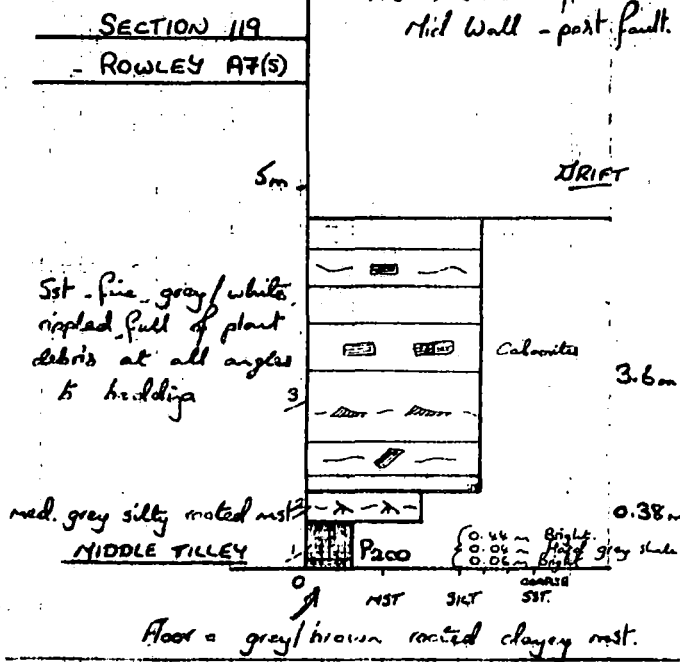 SECTION 119
- ROWLEY A7(S)
Mid Wall - post fault.
5m
DRIFT
Sst - fine grey/white,
rippled full of plant
debris at all angles
to bedding
Calamites
3.6m
3
med. grey silty rooted mst
2
0.38m
MIDDLE TILLEY
1
P200
0.44m Bright.
0.04m Hard grey shale
0.06m Bright
0
MST SILT COARSE SST.
Floor = grey/brown rooted clayey mst.